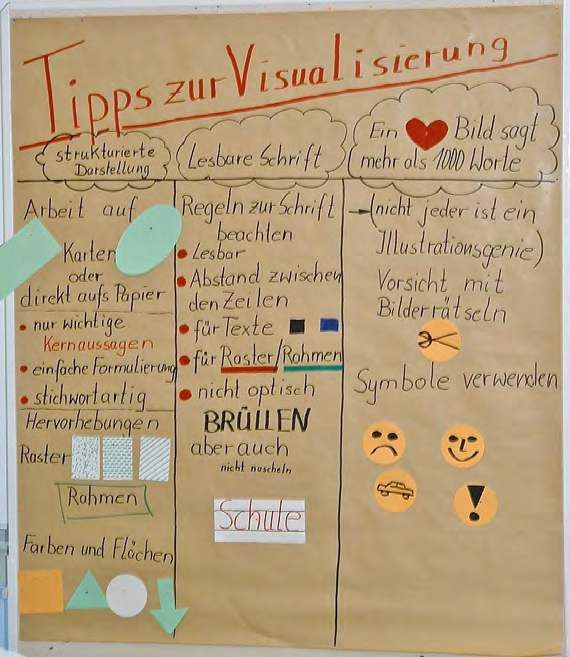 Tipps zur Visualisierung
strukturierte
Darstellung
Arbeit auf
Karten
oder
direkt aufs Papier
nur wichtige
Kernaussagen
einfache Formulierung
stichwortartig
Hervorhebungen
Raster
Rahmen
Farben und Flächen
Lesbare Schrift
Regeln zur Schrift
beachten
Lesbar
Abstand zwischen
den Zeilen
für Texte
für Raster/Rahmen
nicht optisch
BRÜLLEN
aber auch
nicht nuscheln
Schule
Ein ❤ Bild sagt
mehr als 1000 Worte
→ (nicht jeder ist ein
Illustrationsgenie)
Vorsicht mit
Bilderrätseln
Symbole verwenden
!